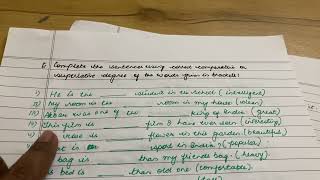 Complete the sentences using correct comparative or
superlative degree of the words given in brackets:
i) He is the ______ student in the school (intelligent)
ii) My room is the ______ room in my house (clean)
iii) Akbar was one of the ______ king of India (great)
iv) This film is ______ film I have ever seen (interesting)
is ______ flower in this garden (beautiful)
is ______ sport in India? (popular)
bag is ______ than my friends bag. (heavy)
bed is ______ than old one (comfortable)